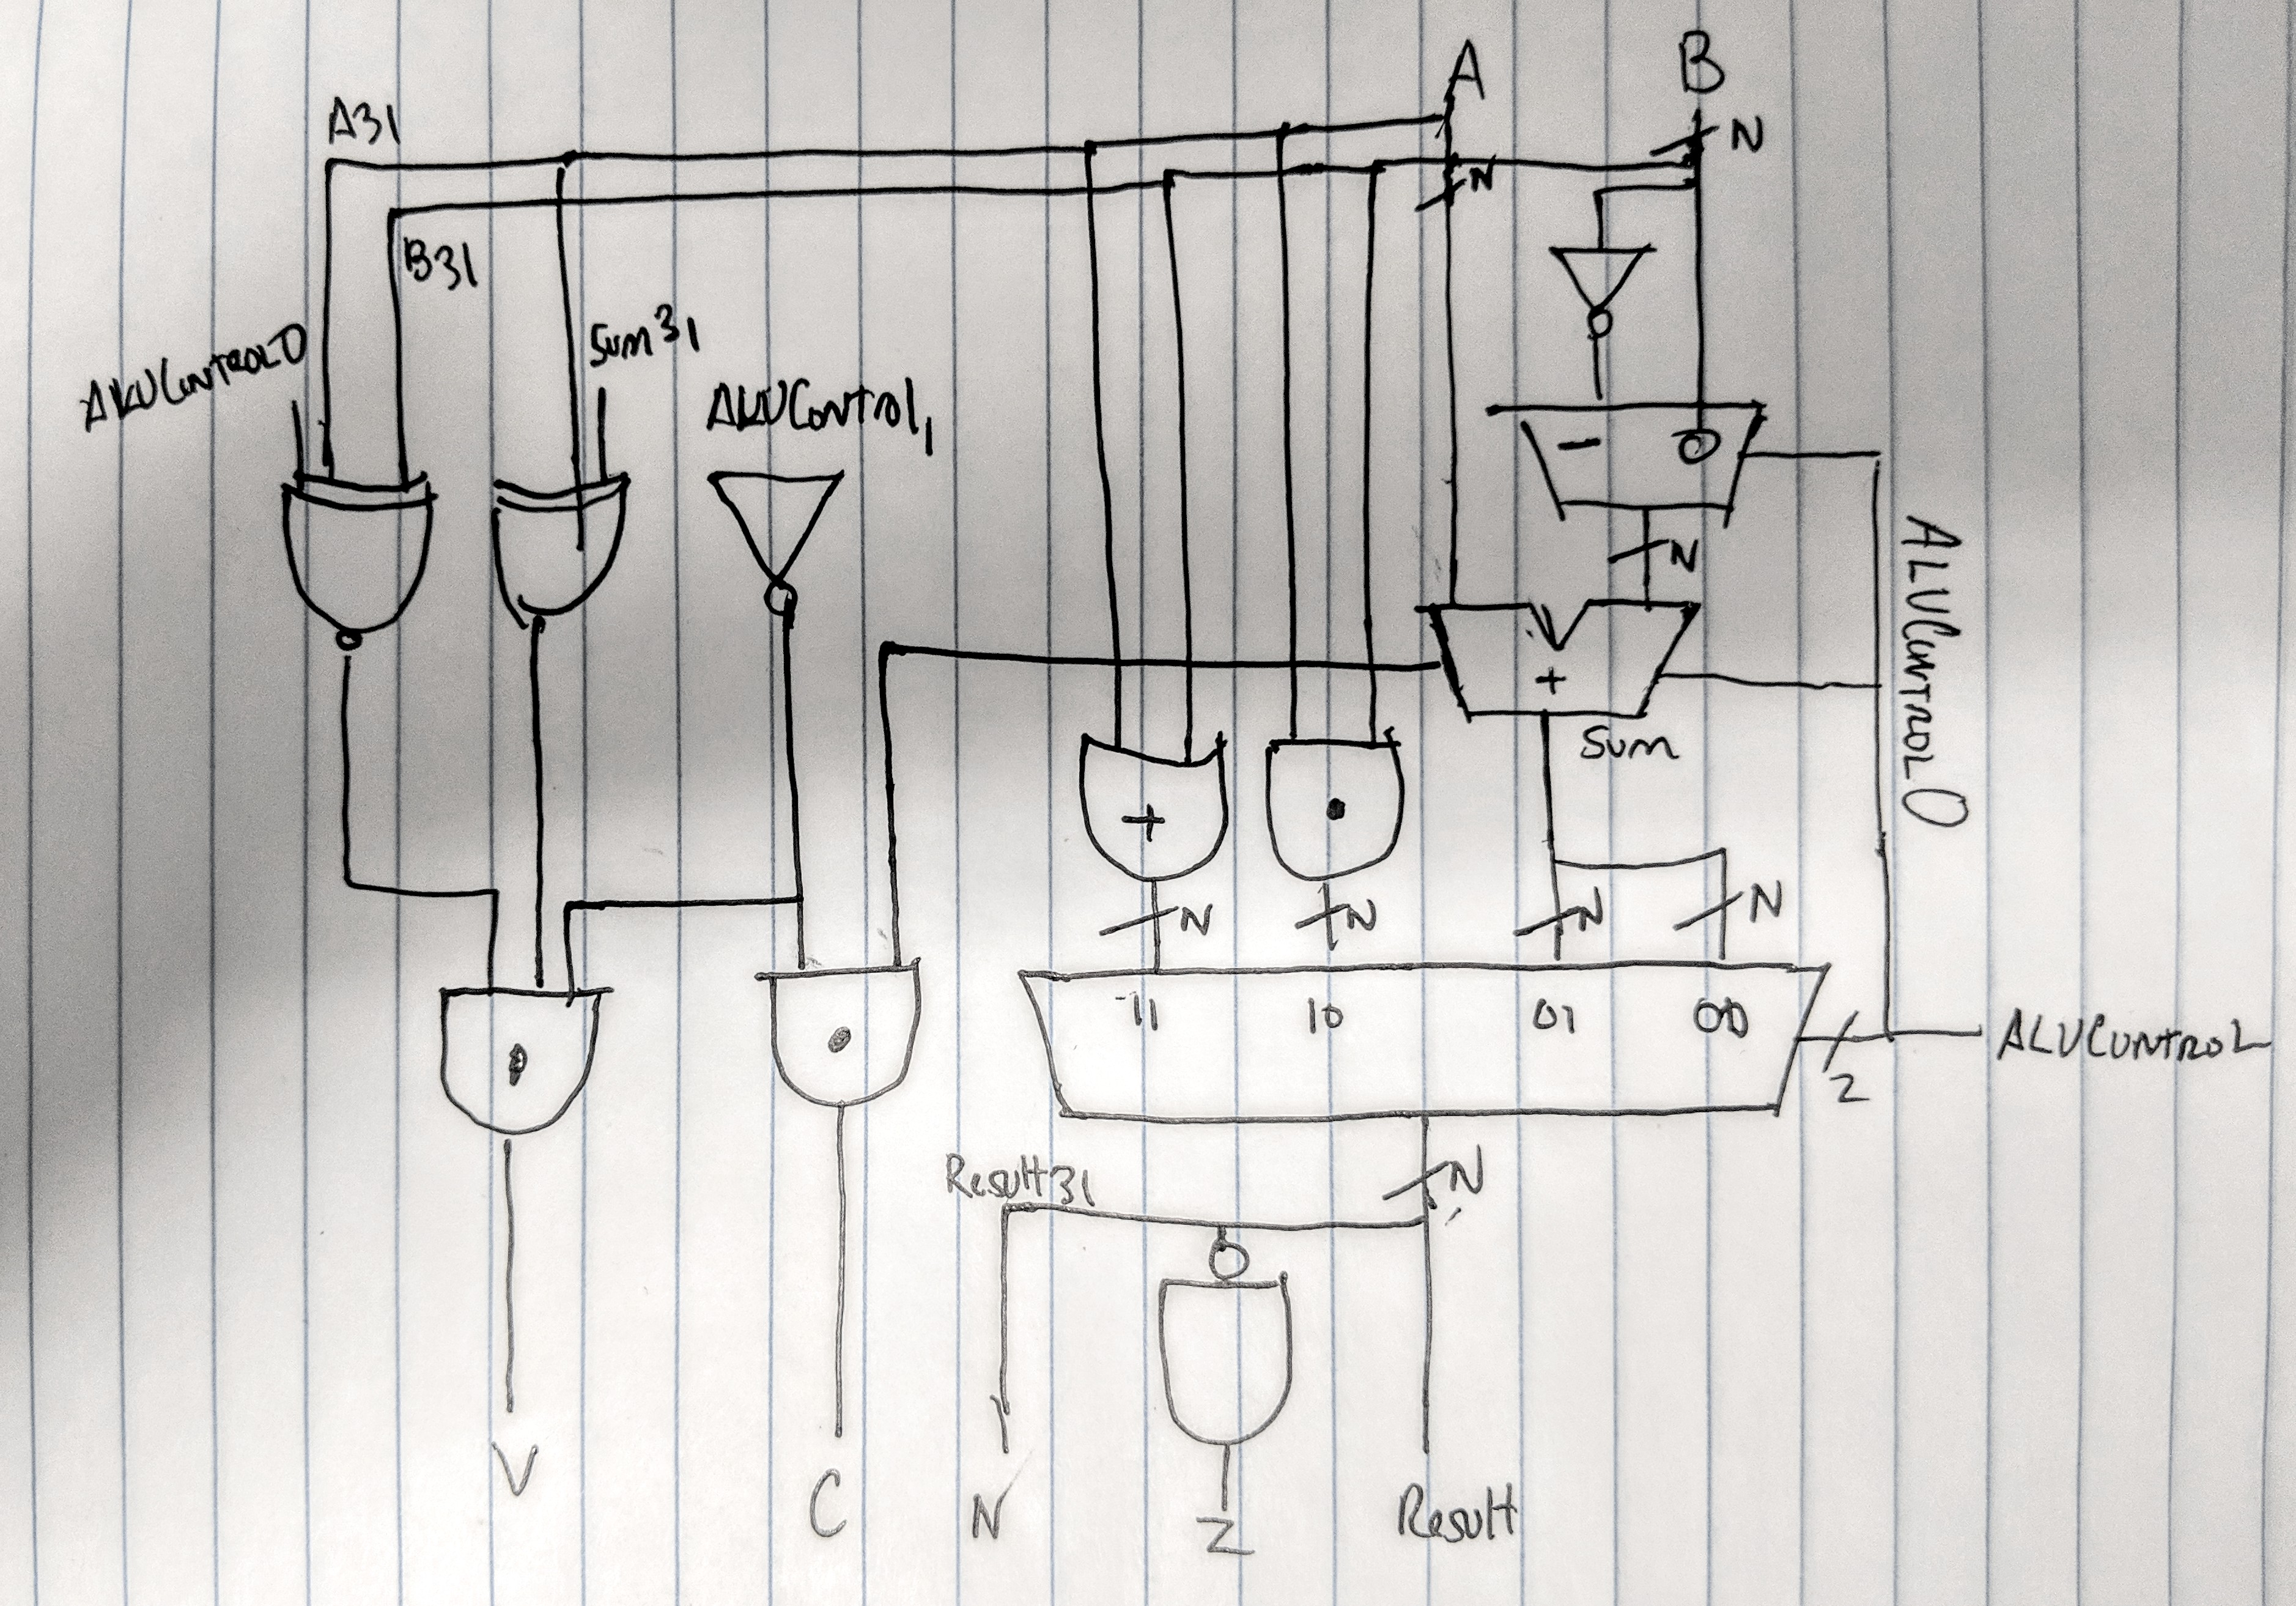 A B
N
A31
N
B31
Sum31
ALUControl0
ALUControl1
- 0
N
ALUControl0
+
Sum
+
N N N N
11 10 01 00
ALUControl
2
Result31
N
V C N Z Result